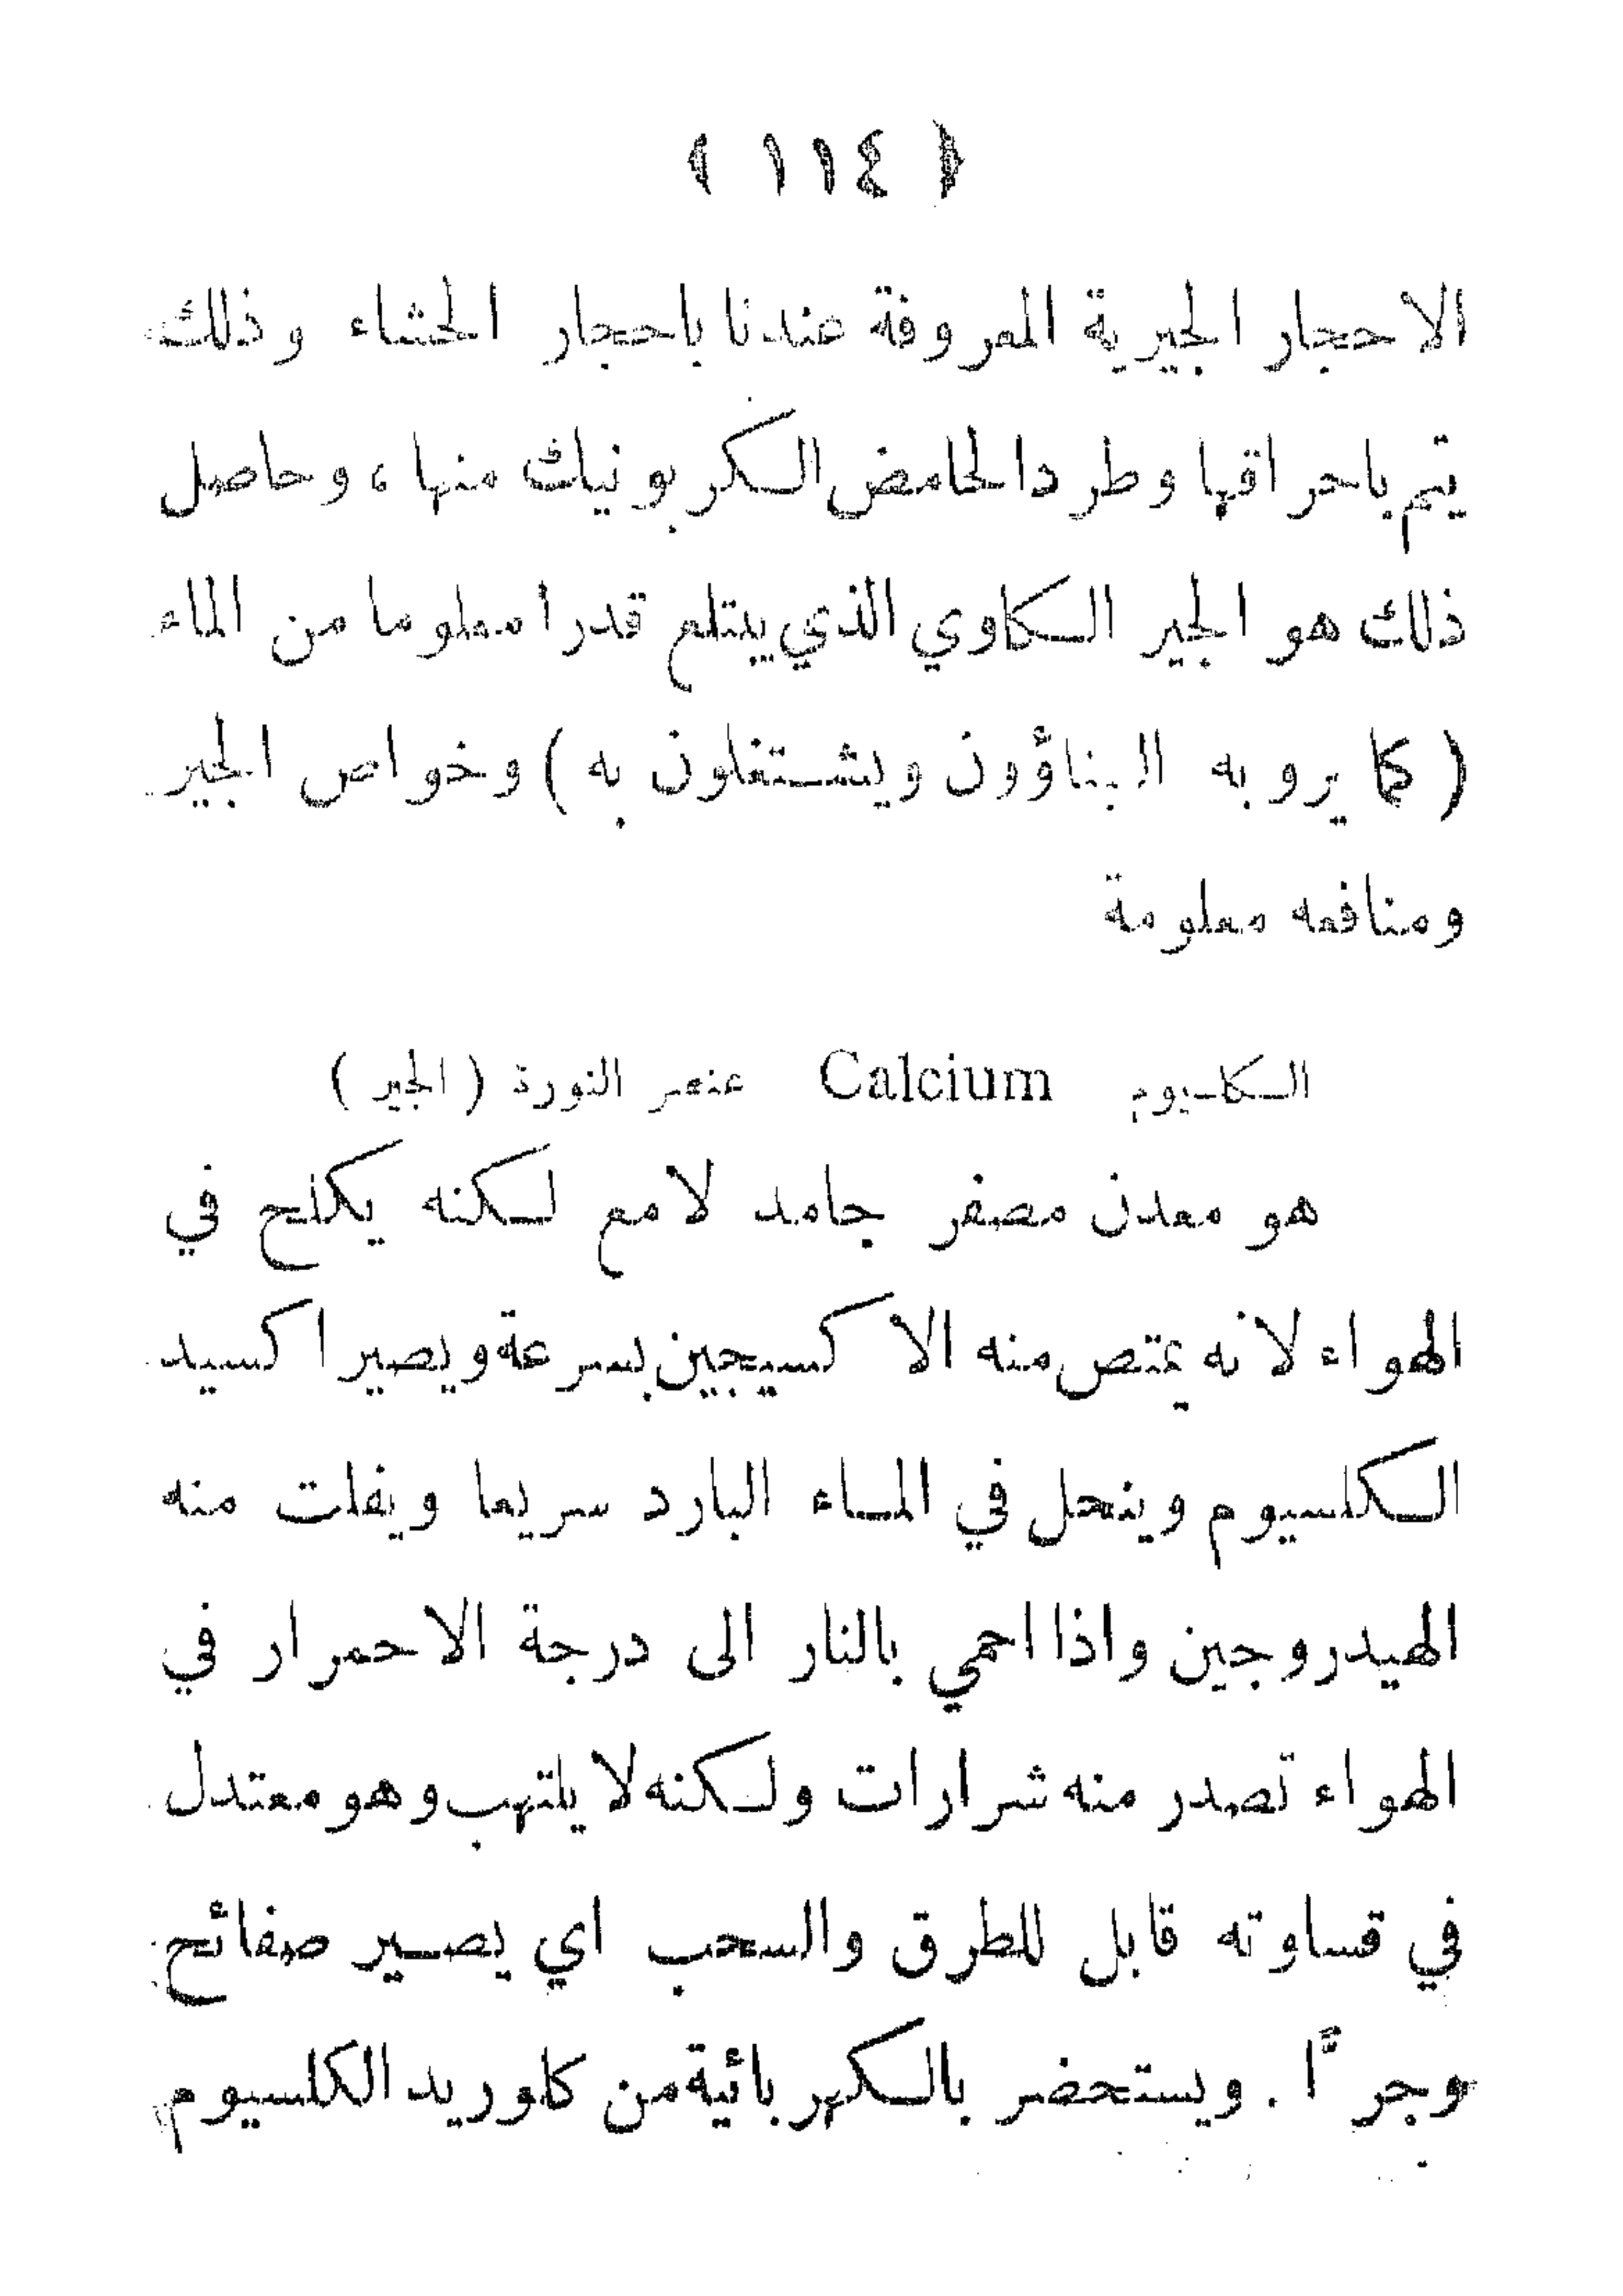 ﴿ ١١٤ ﴾
الاحجار الجيرية المعروفة عندنا باحجار الحشاء وذلك
يتم باحراقها وطرد الحامض الكربونيك منها، وحاصل
ذلك هو الجير الكاوي الذي يبتلع قدرا معلوما من الماء
(كما يروبه البناؤون ويشتغلون به) وخواص الجير
ومنافعه معلومة
الكاسيوم Calcium عنصر النورة (الجير)
هو معدن مصفر جامد لامع لكنه يكلح في
الهواء لانه يمتص منه الاكسيجين بسرعة ويصير اكسيد
الكلسيوم وينحل في الماء البارد سريعا ويفلت منه
الهيدروجين واذا احمي بالنار الى درجة الاحمرار في
الهواء تصدر منه شرارات ولكنه لا يلتهب وهو معتدل
في قساوته قابل للطرق والسحب اي يصير صفائح
وجرًّا. ويستحضر بالكهربائية من كلوريد الكلسيوم